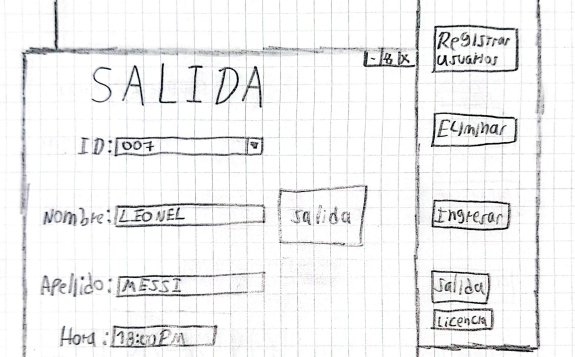 SALIDA
ID: 007
Nombre: LEONEL
salida
Apellido: MESSI
Hora: 13:00 PM
Registrar
usuarios
Eliminar
Ingresar
Salida
Licencia